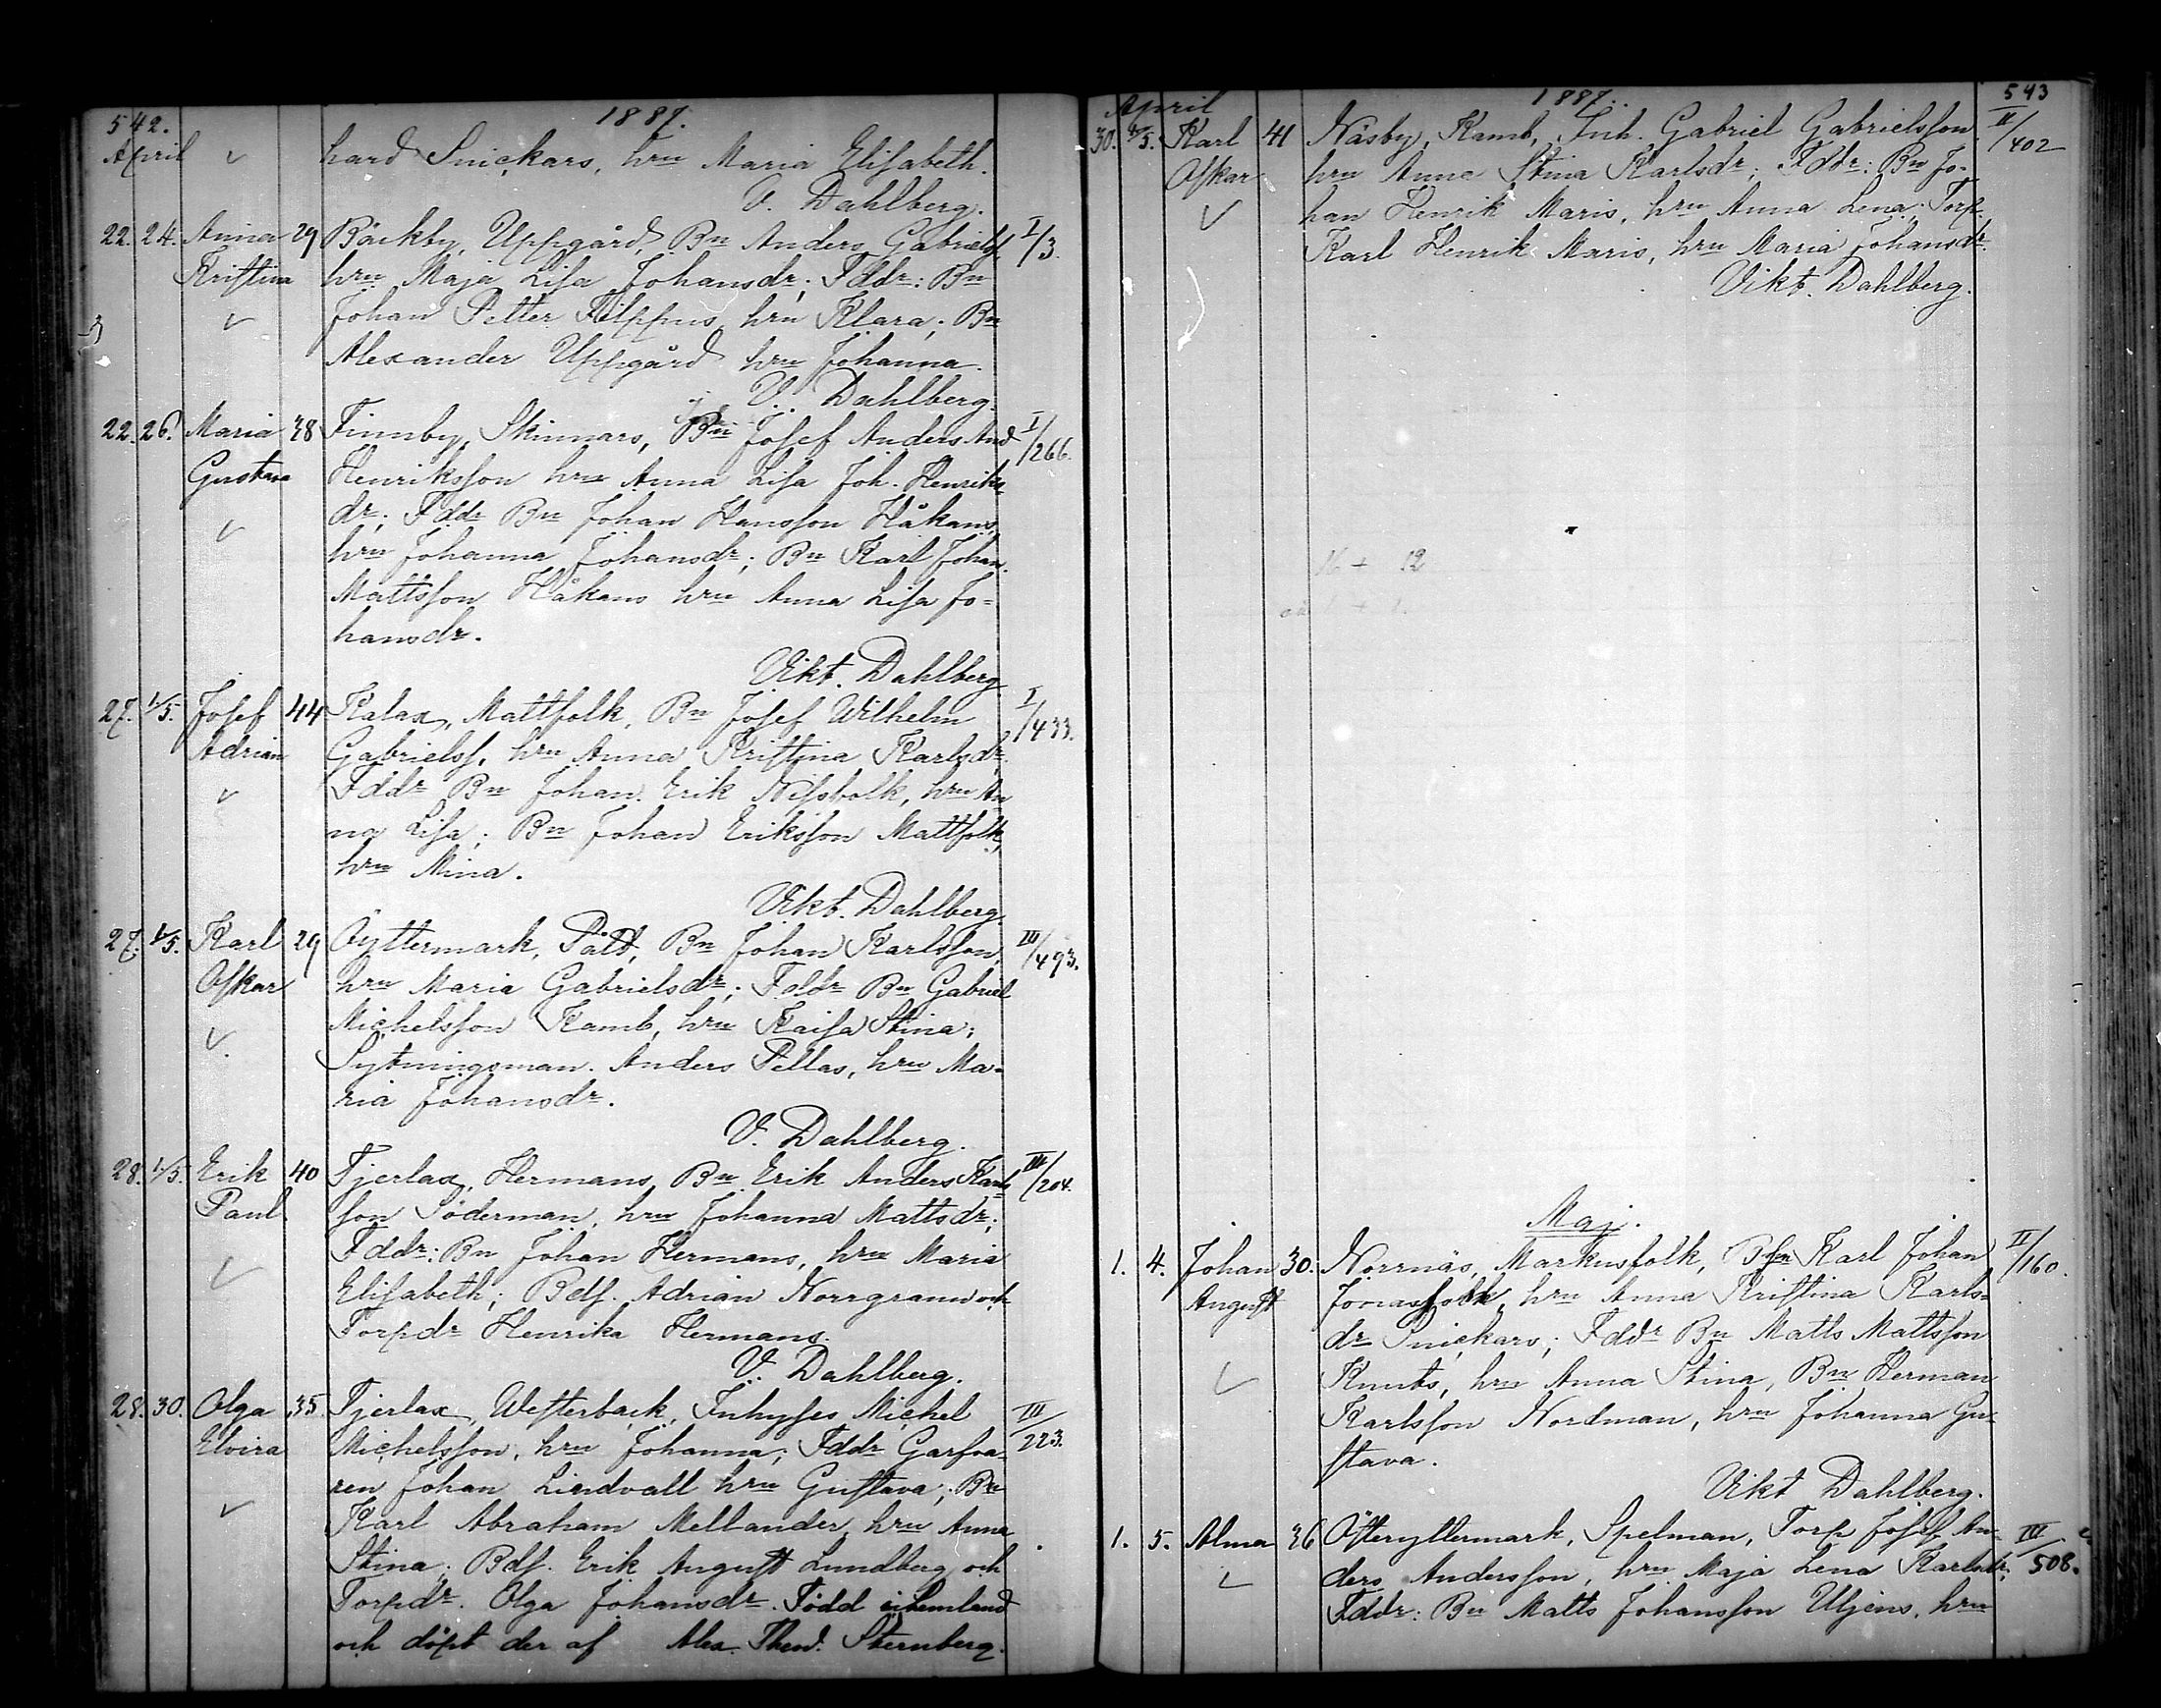 542. 1887.
April hard Snickars, hru Maria Elisabeth.
V. Dahlberg.
22. 24. Anna 29 Bäckby, Uppgård, Bn Anders Gabrielss. I/3.
Kristina hru Maja Lisa Johansdr; Fddr: Bn
Johan Petter Filppus, hru Klara; Bn
Alexander Uppgård hru Johanna.
V. Dahlberg.
22. 26. Maria 38 Finnby, Skinnars, Bn Josef Anders And I/266.
Gustava Henriksson hru Anna Lisa Joh. Henriks
dr; Fddr Bn Johan Hansson Håkans,
hru Johanna Johansdr; Bn Karl Johan
Mattsson Håkans hru Anna Lisa Jo-
hansdr.
Vikt. Dahlberg.
27. 1/5. Josef 44 Kalax, Mattfolk, Bn Josef Wilhelm I/433.
Adrian Gabrielss. hru Anna Kristina Karlsdr,
Fddr Bn Johan Erik Nissfolk, hru An
na Lisa; Bn Johan Eriksson Mattfolk,
hru Mina.
Vikt. Dahlberg.
27. 1/5. Karl 29 Öyttermark, Pått, Bn Johan Karlsson, III/493.
Oskar hru Maria Gabrielsdr; Fddr Bn Gabriel
Michelsson Kamb, hru Kaisa Stina;
Sytningsman. Anders Pellas, hru Ma-
ria Johansdr.
V. Dahlberg.
28. 1/5. Erik 40 Tjerlax, Hermans, Bn Erik Anders Karls III/204.
Paul. son Söderman, hru Johanna Mattsdr;
Fddr: Bn Johan Hermans, hru Maria
Elisabeth; Bds. Adrian Norrgrann och
Torpdr Henrika Hermans.
V. Dahlberg.
28. 30. Olga 35 Tjerlax, Westerback, Inhyses Michel III/223.
Elvira Michelsson, hru Johanna; Fddr Garfva-
ren Johan Lindvall hru Gustava; Bn
Karl Abraham Mellander hru Anna
Stina; Bds. Erik August Lundberg och
Torpdr. Olga Johansdr. Född i
och döpt der af Alex. Theod. Sternberg.
April 1887. 543
30. 5. Karl 41 Näsby, Kamb, Inh. Gabriel Gabrielsson II/402
Oskar hru Anna Stina Karlsdr; Fddr: Bn Jo-
han Henrik Maris, hru Anna Lena; Torp.
Karl Henrik Maris, hru Maria Johansdr.
Vikt. Dahlberg.
16 + 12
Maj.
1. 4. Johan 30. Norrnäs, Markusfolk, Karl Johan II/160.
August Jonasfolk, hru Anna Kristina Karls-
dr Snickars; Fddr Bn Matts Mattsson
Knuts, hru Anna Stina, Bn Herman
Karlsson Nordman, hru Johanna Gu-
stava.
Vikt Dahlberg.
1. 5. Alma 36 Österyttermark, Spelman, Torp Josef An- III/508.
ders Andersson, hru Maja Lena Karlsdr;
Fddr: Bn Matts Johansson Uljens, hru